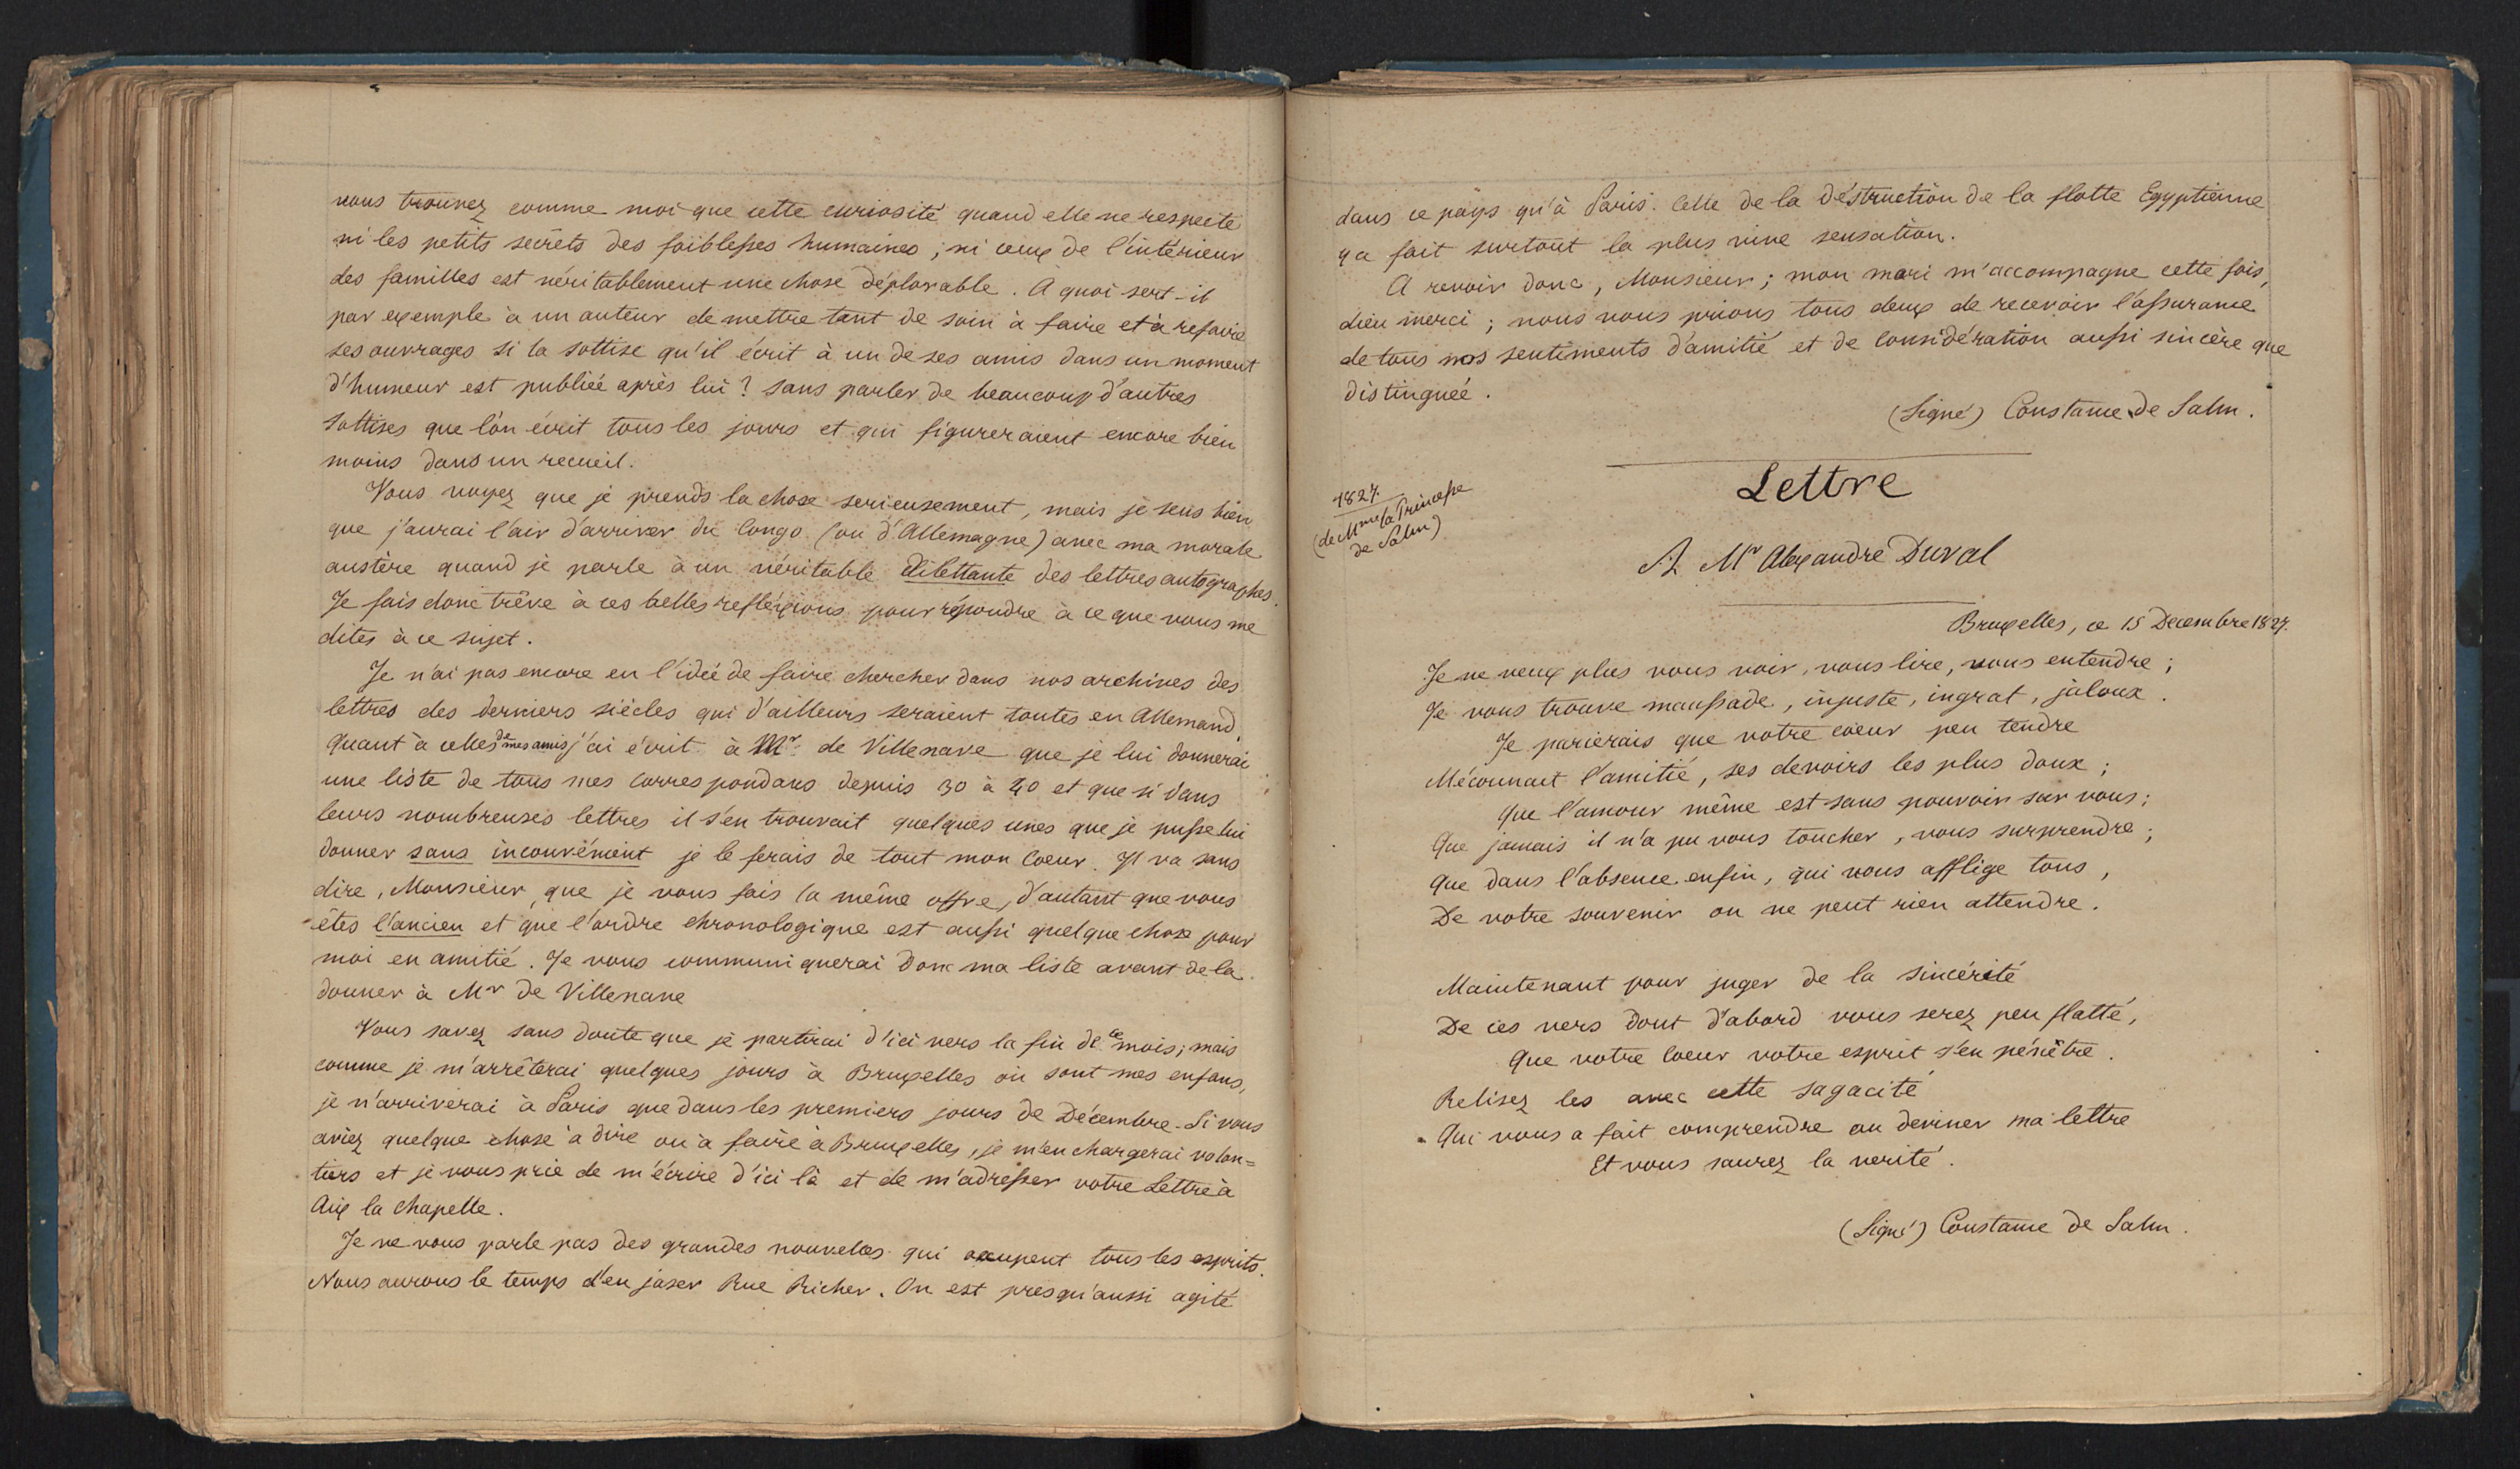 vous trouvez comme moi que cette curiosité quand elle ne respecte
ni les petits secrèts des foiblesses humaines ; ni ceux de l'intérieur
des familles est véritablement une chose déplorable. A quoi sert-il
par exemple à un auteur de mettre tant de soin à faire et à refaire
ses ouvrages si la sottise qu'il écrit à un de ses amis dans un moment
d'humeur est publiée après lui ? sans parler de beaucoup d'autres
sottises que l'on écrit tous les jours et qui figureraient encore bien
moins dans un recueil.
Vous voyez que je prends la chose serieusement, mais je sens bien
que j'aurai l'air d'arriver du Congo (ou d'Allemagne) avec ma morale
austère quand je parle à un véritable dilettante des lettres autographes.
Je fais donc trêve à ces belles refléxions pour répondre à ce que vous me
dites à ce sujet.
Je n'ai pas encore eu l'idée de faire chercher dans nos archives des
lettres des derniers siècles qui d'ailleurs seraient toutes en Allemand.
Quant à celles de mes amis j'ai écrit à Mr. de Villenave que je lui donnerai
une liste de tous mes correspondans depuis 30 à 40 et que si dans
leurs nombreuses lettres il s'en trouvait quelques unes que je pusse lui
donner sans inconvénient je le ferais de tout mon Coeur. Il va sans
dire, Monsieur, que je vous fais la même offre, d'autant que vous
êtes l'ancien et que l'ordre chronologique est aussi quelque chose pour
moi en amitié. Je vous communiquerai donc ma liste avant de la
donner à Mr de Villenave
Vous savez sans doute que je partirai d'ici vers la fin de ce mois ; mais
comme je m'arrêterai quelques jours à Bruxelles où sont mes enfans,
je n'arriverai à Paris que dans les premiers jours de Décembre. Si vous
aviez quelque chose à dire ou à faire à Bruxelles, je m'en chargerai volon=
tiers et je vous prie de m'écrire d'ici là et de m'adresser votre Lettre à
Aix la chapelle.
Je ne vous parle pas des grandes nouvelles qui occupent tous les esprits.
Nous aurons le temps d'en jaser Rue Richer. On est presqu'aussi agité
dans ce pays qu'à Paris. Celle de la Déstruction de la flotte Egyptienne
y a fait surtout la plus vive sensation.
A revoir donc, Monsieur ; mon mari m'accompagne cette fois,
dieu merci ; nous vous prions tous deux de recevoir l'assurance
de tous nos sentiments d'amitié et de Considération aussi sincère que
distinguée.
(Signé) Constance de Salm.
Lettre
1827.
(de Mme la Princesse
de Salm)
A Mr Alexandre Duval
Bruxelles, ce 15 Decembre 1827.
Je ne veux plus vous voir, vous lire, vous entendre ;
Je vous trouve maussade, injuste, ingrat, jaloux.
Je parierais que votre coeur peu tendre
Méconnait l'amitié, ses devoirs les plus doux ;
Que l'amour même est sans pouvoir sur vous ;
Que jamais il n'a pu vous toucher, vous surprendre ;
Que dans l'absence enfin, qui vous afflige tous,
De votre souvenir on ne peut rien attendre.
Maintenant pour juger de la sincérité
De ces vers dont d'abord vous serez peu flatté,
Que votre Coeur votre esprit s'en pénètre.
Relisez les avec cette sagacité
Qui vous a fait comprendre ou deviner ma lettre
Et vous saurez la verité.
(Signé) Constance de Salm.